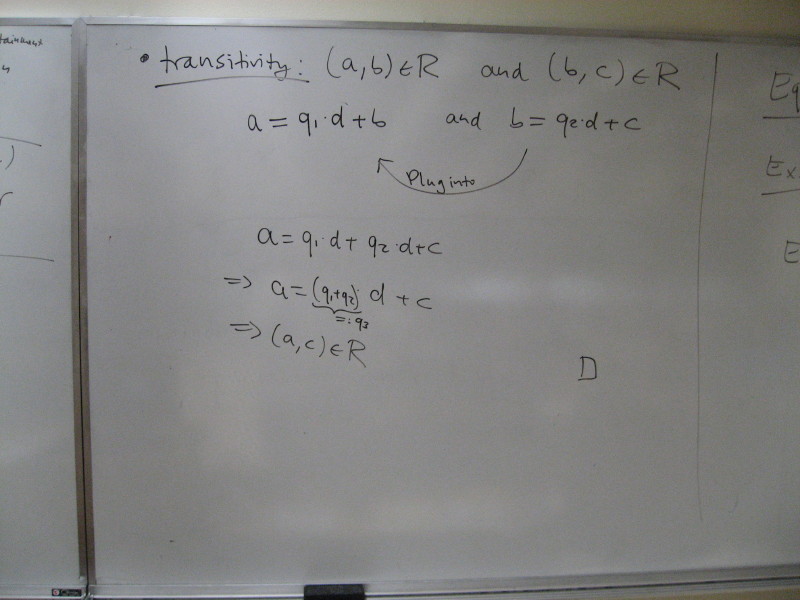 • transitivity: (a,b)∈R and (b,c)∈R
a = q₁·d+b and b = q₂·d+c
Plug into
a = q₁·d + q₂·d+c
⇒ a = (q₁+q₂)·d + c
=: q₃
⇒ (a,c)∈R
□
Ex